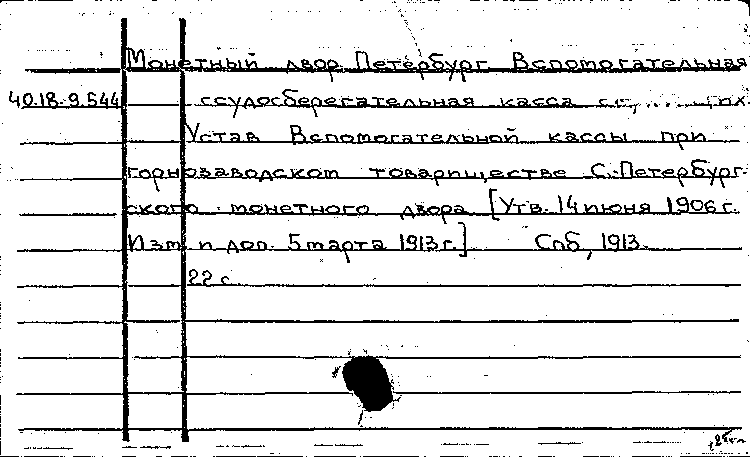 Монетный двор. Петербург. Вспомогательная
40.18.9.544 ссудосберегательная касса
Устав Вспомогательной кассы при
горнозаводском товариществе С.-Петербург-
ского монетного двора [Утв. 14 июня 1906 г.
Изм. и доп. 5 марта 1913 г.] Спб, 1913.
22 с.